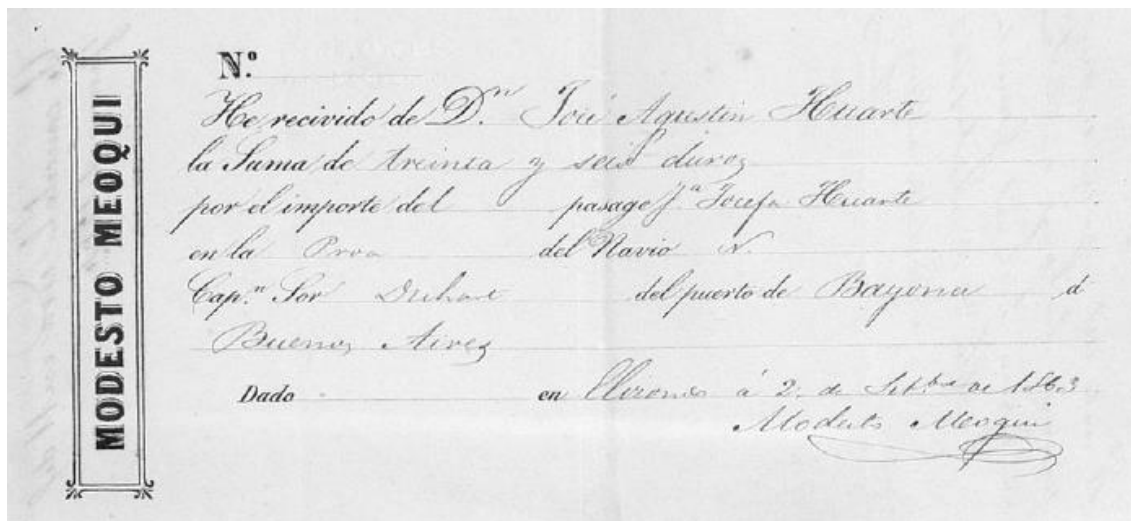 MODESTO MEOQUI
N.º
He recivido de D.n José Agustin Huarte
la Suma de treinta y seis duros
por el importe del pasage J.a Josefa Huarte
en la Proa del Navio N.
Cap.n Sor Duhart del puerto de Bayona á
Buenos Aires
Dado en á 2 de Set.bre de 1863
Modesto Meoqui